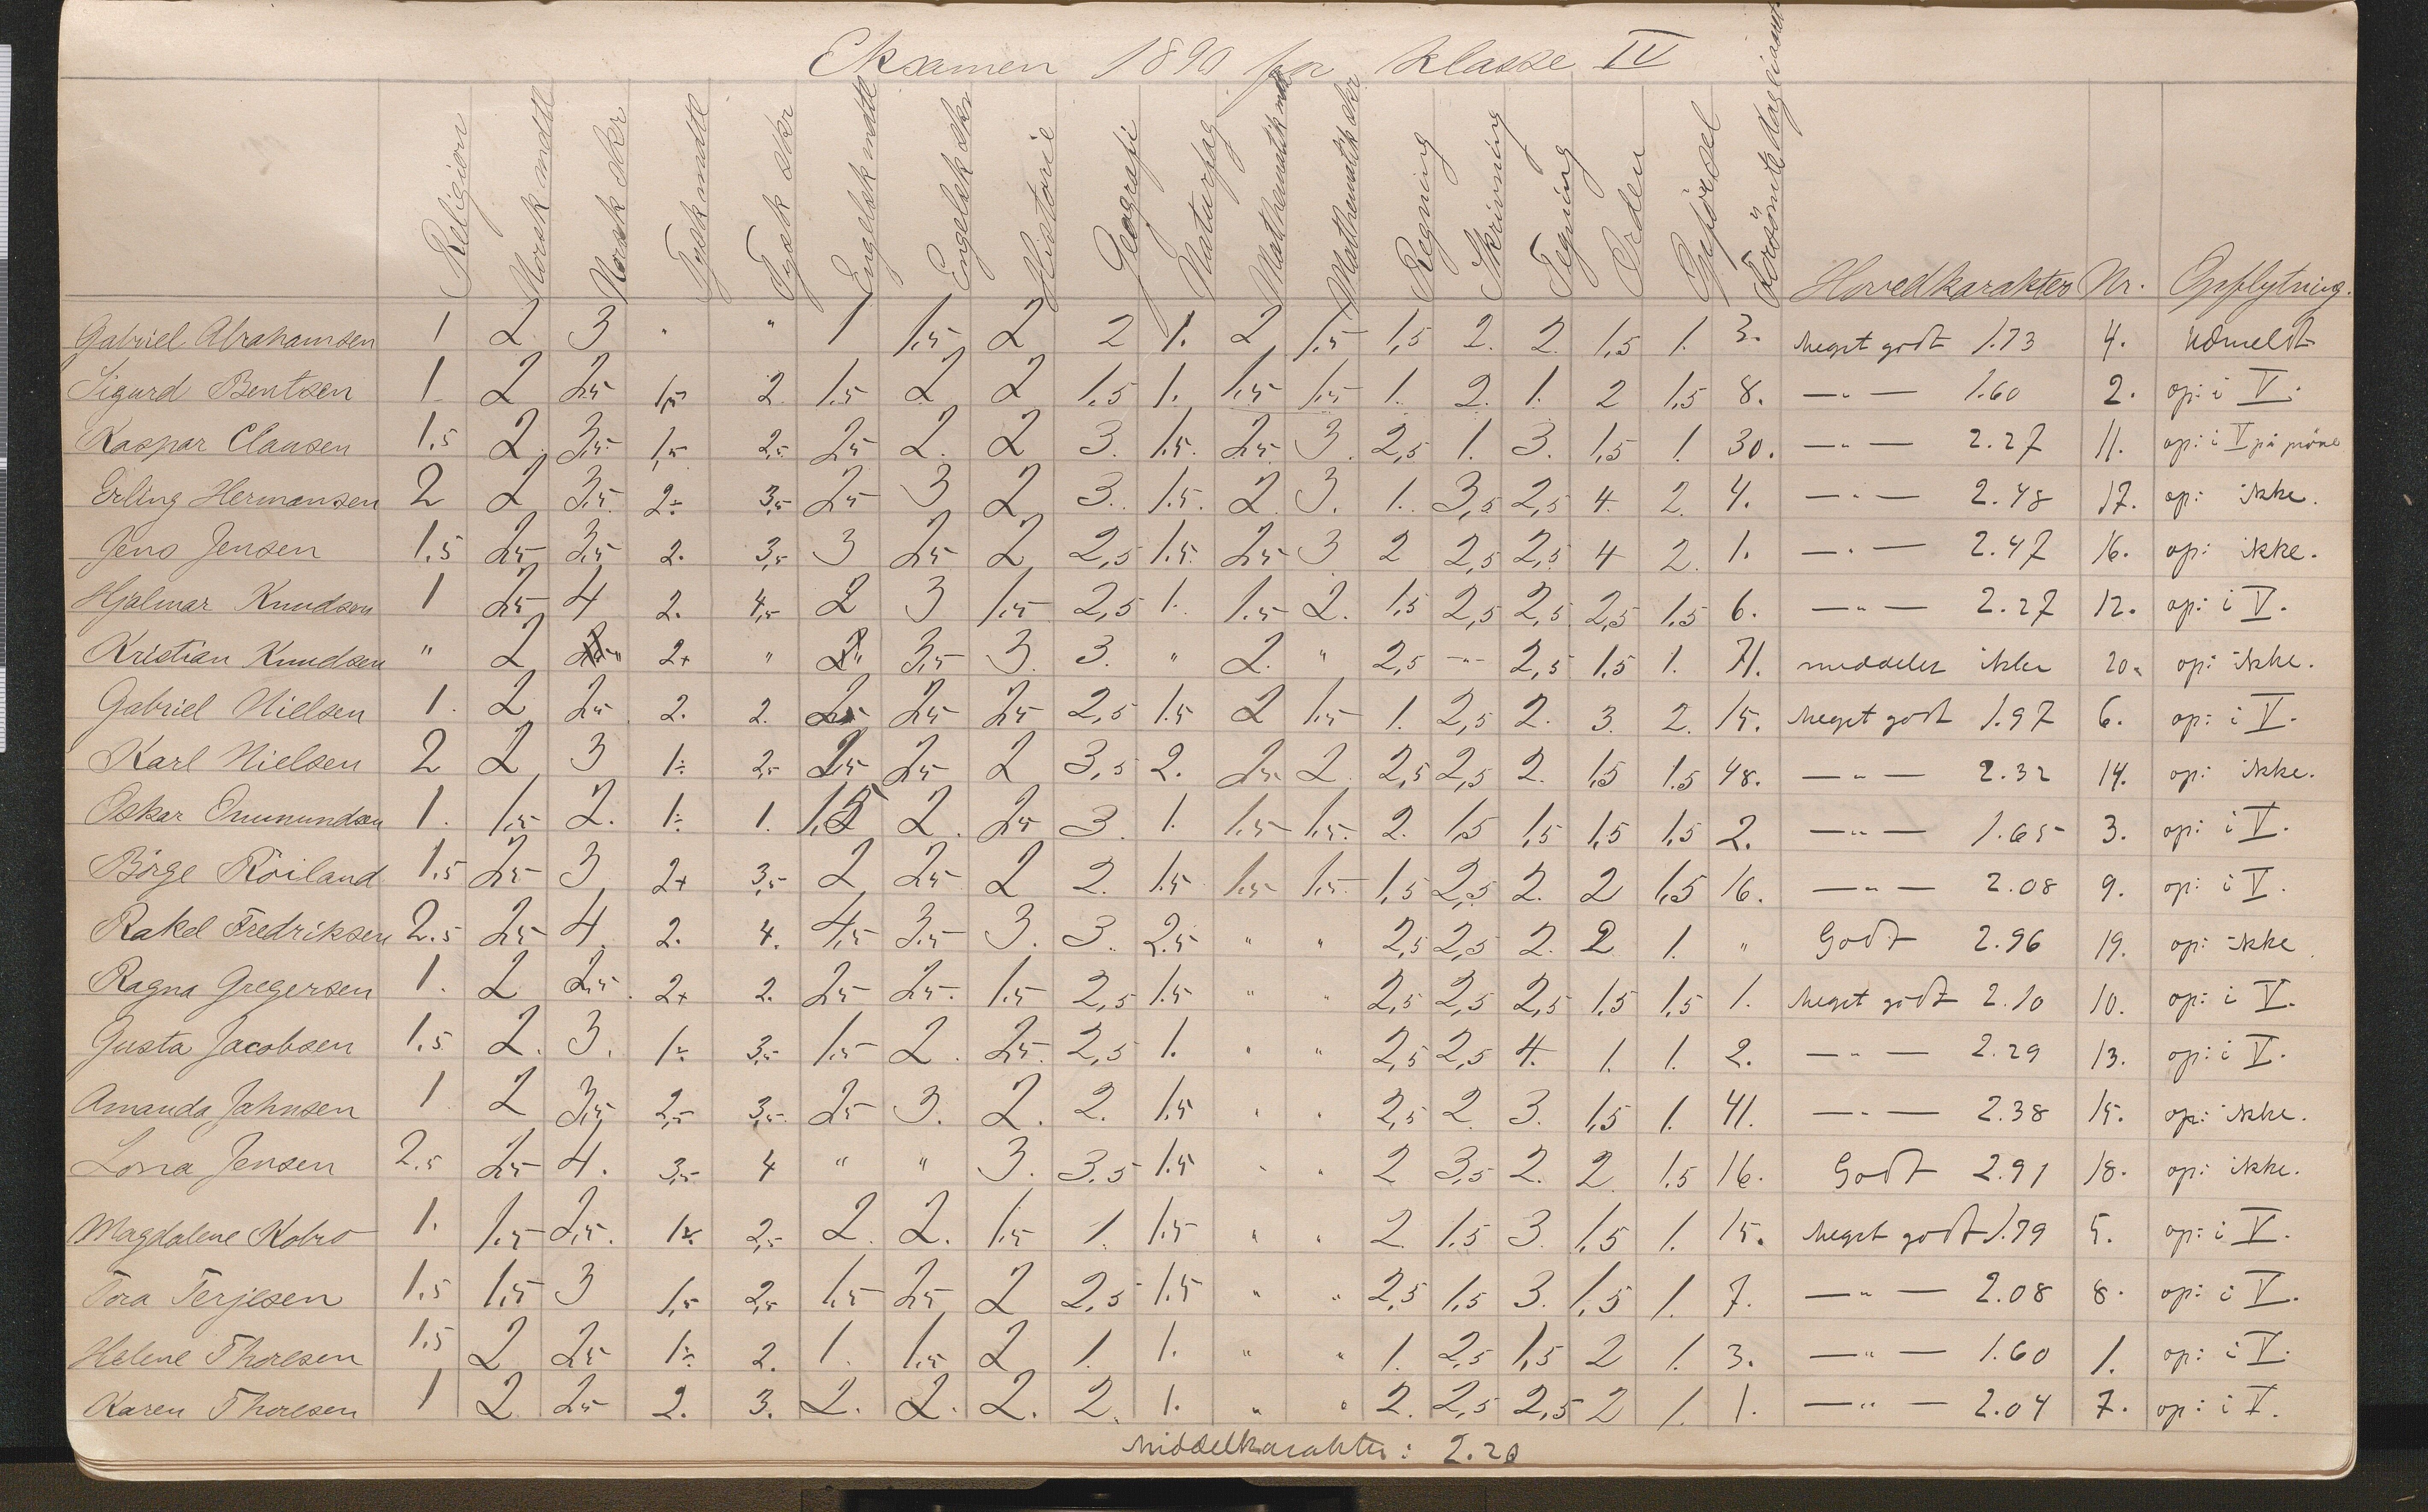 Eksamen 1890 for klasse IV
Religion Norsk mdtl Norsk skr Tysk mdtl Tysk skr Engelsk mdtl Engelsk skr Historie Geografi Naturfag Mathematik mdtl Mathematik skr Regning Skrivning Tegning Orden Opförsel Forsömte dage Hovedkarakter Nr. Opflytning.
Gabriel Abrahamsen 1 2 3 " " 1 1.5 2 2 1. 2 1.5 1,5 2. 2. 1,5 1. 3. Meget godt 1.73 4. Udmeldt
Sigurd Bentsen 1 2 2.5 1,5 2. 1.5 2 2 1,5 1. 1.5 1.5 1. 2. 1. 2 1,5 8. — " — 1.60 2. op: i V.
Kaspar Clausen 1.5 2. 3.5 1,5 2,5 2.5 2. 2 3. 1.5. 2.5 3. 2,5 1. 3. 1,5 1. 30. — " — 2.27 11. op: i V på pröve
Erling Hermansen 2 2 3.5 2÷ 3,5 2.5 3 2 3. 1.5. 2. 3. 1. 3,5 2,5 4. 2. 4. — " — 2.48 17. op: ikke.
Jens Jensen 1.5 2.5 3.5 2. 3,5 3 2.5 2 2,5 1.5. 2.5 3 2 2,5 2,5 4 2. 1. — " — 2.47 16. op: ikke.
Hjalmar Knudsen 1 2.5 4 2. 4,5 2 3 1.5 2,5 1. 1.5 2. 1,5 2,5 2,5 2,5 1.5 6. — " — 2.27 12. op: i V.
Kristian Knudsen " 2 " 2+ " " 3.5 3. 3. " 2. " 2,5 - " - 2,5 1.5 1. 71. meddeles ikke 20. op: ikke.
Gabriel Nielsen 1. 2 2.5 2. 2. 2.5 2.5 2.5 2,5 1.5 2 1.5 1. 2,5 2. 3. 2. 15. Meget godt 1.97 6. op: i V.
Karl Nielsen 2 2 3 1÷ 2,5 2.5 2.5 2 3,5 2. 2.5 2. 2,5 2,5 2. 1,5 1.5 48. — " — 2.32 14. op: ikke.
Oskar Ommundsen 1. 1.5 2. 1÷ 1. 1,5 2. 2.5 3. 1. 1.5 1.5. 2. 1,5 1,5 1,5 1,5 2. — " — 1.65 3. op: i V.
Börge Röiland 1.5 2.5 3 2+ 3,5 2 2.5 2 2. 1.5 1.5 1.5 1,5 2,5 2. 2 1,5 16. — " — 2.08 9. op: i V.
Rakel Fredriksen 2.5 2.5 4. 2. 4. 4,5 3.5 3. 3. 2.5 " " 2,5 2,5 2. 2 1. " Godt 2.96 19. op: ikke
Ragna Gregersen 1. 2 2.5. 2+ 2. 2.5 2.5. 1.5 2,5 1.5 " " 2,5 2,5 2,5 1,5 1,5 1. Meget godt 2.10 10. op: i V.
Gusta Jacobsen 1.5 2. 3. 1÷ 3,5 1.5 2. 2.5. 2,5 1. " " 2,5 2,5 4. 1. 1. 2. — " — 2.29 13. op: i V.
Amanda Jahnsen 1 2 3.5 2,5 3,5 2.5 3. 2. 2. 1.5 " " 2,5 2 3. 1,5 1. 41. — " — 2.38 15. op: ikke.
Lovra Jensen 2.5 2.5 4. 3,5 4 " " 3. 3.5 1.5 " " 2 3,5 2. 2 1.5 16. Godt 2.91 18. op: ikke.
Magdalene Kobro 1. 1.5 2.5. 1÷ 2,5 2. 2. 1.5 1. 1.5 " " 2. 1.5 3. 1,5 1. 15. Meget godt 1.79 5. op: i V.
Tora Terjesen 1.5 1.5 3 1,5 2,5 1.5 2.5 2 2,5 1.5 " " 2,5 1,5 3. 1,5 1. 7. — " — 2.08 8. op: i V.
Helene Thoresen 1.5 2 2.5 1÷ 2. 1. 1.5 2 1. 1. " " 1. 2,5 1,5 2 1. 3. — " — 1.60 1. op: i V.
Karen Thoresen 1 2. 2.5 2. 3. 2. 2. 2. 2. 1. " " 2. 2,5 2,5 2 1. 1. — " — 2.04 7. op: i V.
Middelkarakter: 2.20